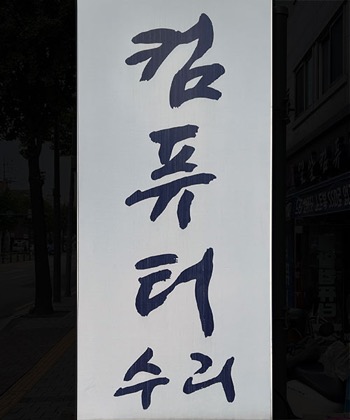 컴
퓨
터
수리